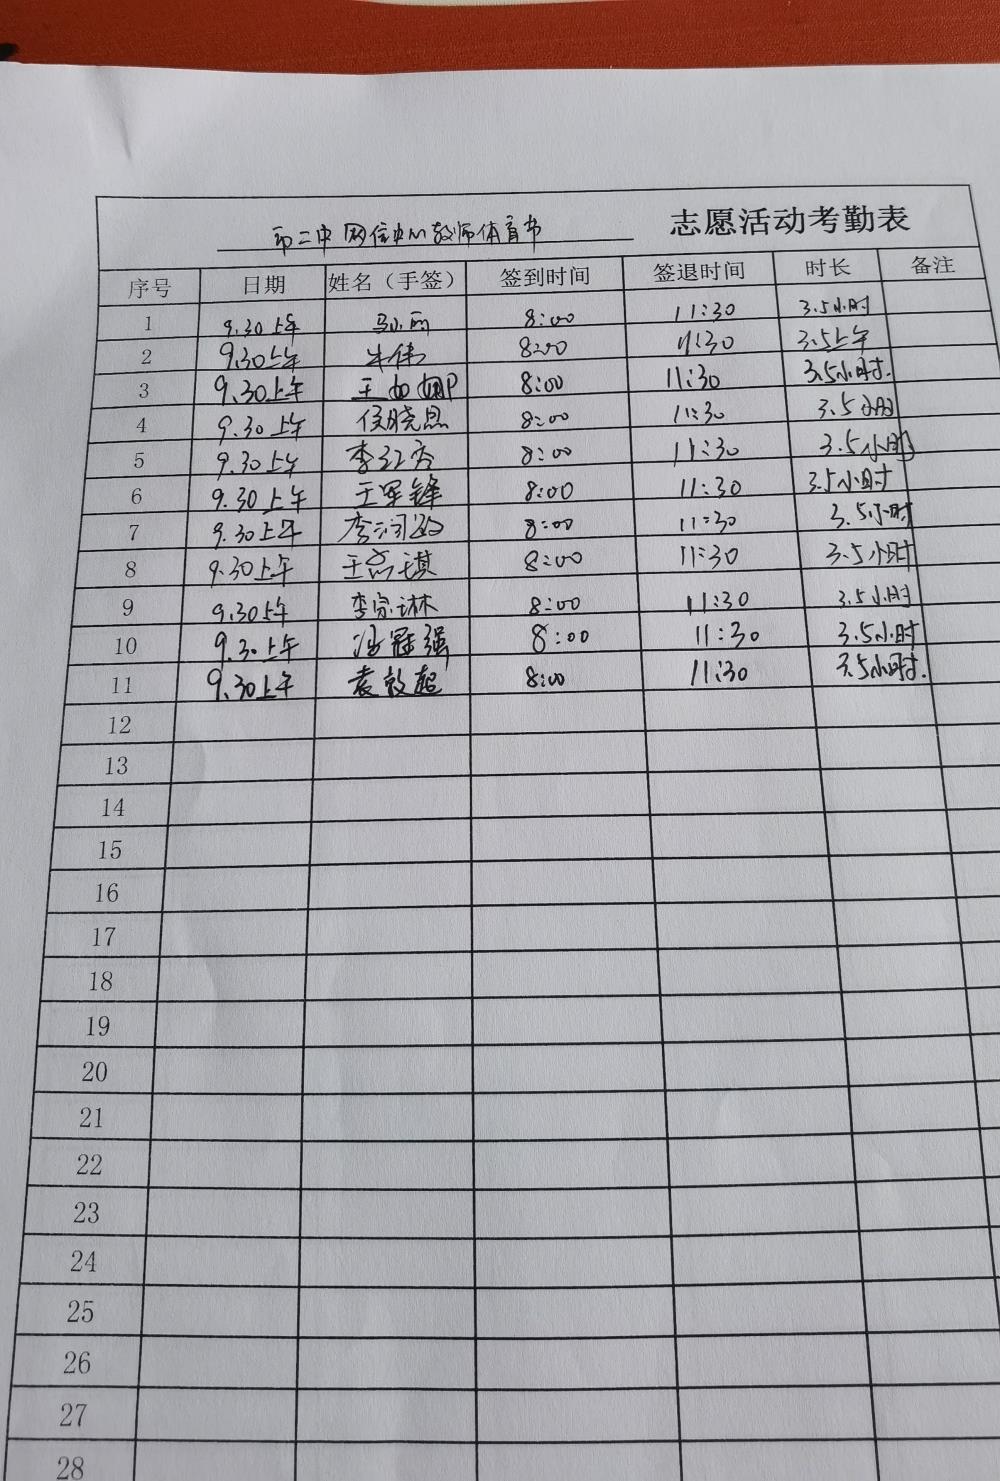 市二中网信中心教师体育节 志愿活动考勤表
序号 日期 姓名（手签） 签到时间 签退时间 时长 备注
1 9.30上午 马小雨 8:00 11:30 3.5小时
2 9.30上午 牛伟 8:00 11:30 3.5上午
3 9.30上午 王 8:00 11:30 3.5小时.
4 9.30上午 侯晓恩 8:00 11:30 3.5小时
5 9.30上午 李红秀 8:00 11:30 3.5小时
6 9.30上午 王军锋 8:00 11:30 3.5小时
7 9.30上午 李润 8:00 11:30 3.5小时
8 9.30上午 王 琪 8:00 11:30 3.5小时
9 9.30上午 李宗琳 8:00 11:30 3.5小时
10 9.30上午 冠强 8:00 11:30 3.5小时
11 9.30上午 袁效超 8:00 11:30 3.5小时.
12
13
14
15
16
17
18
19
20
21
22
23
24
25
26
27
28